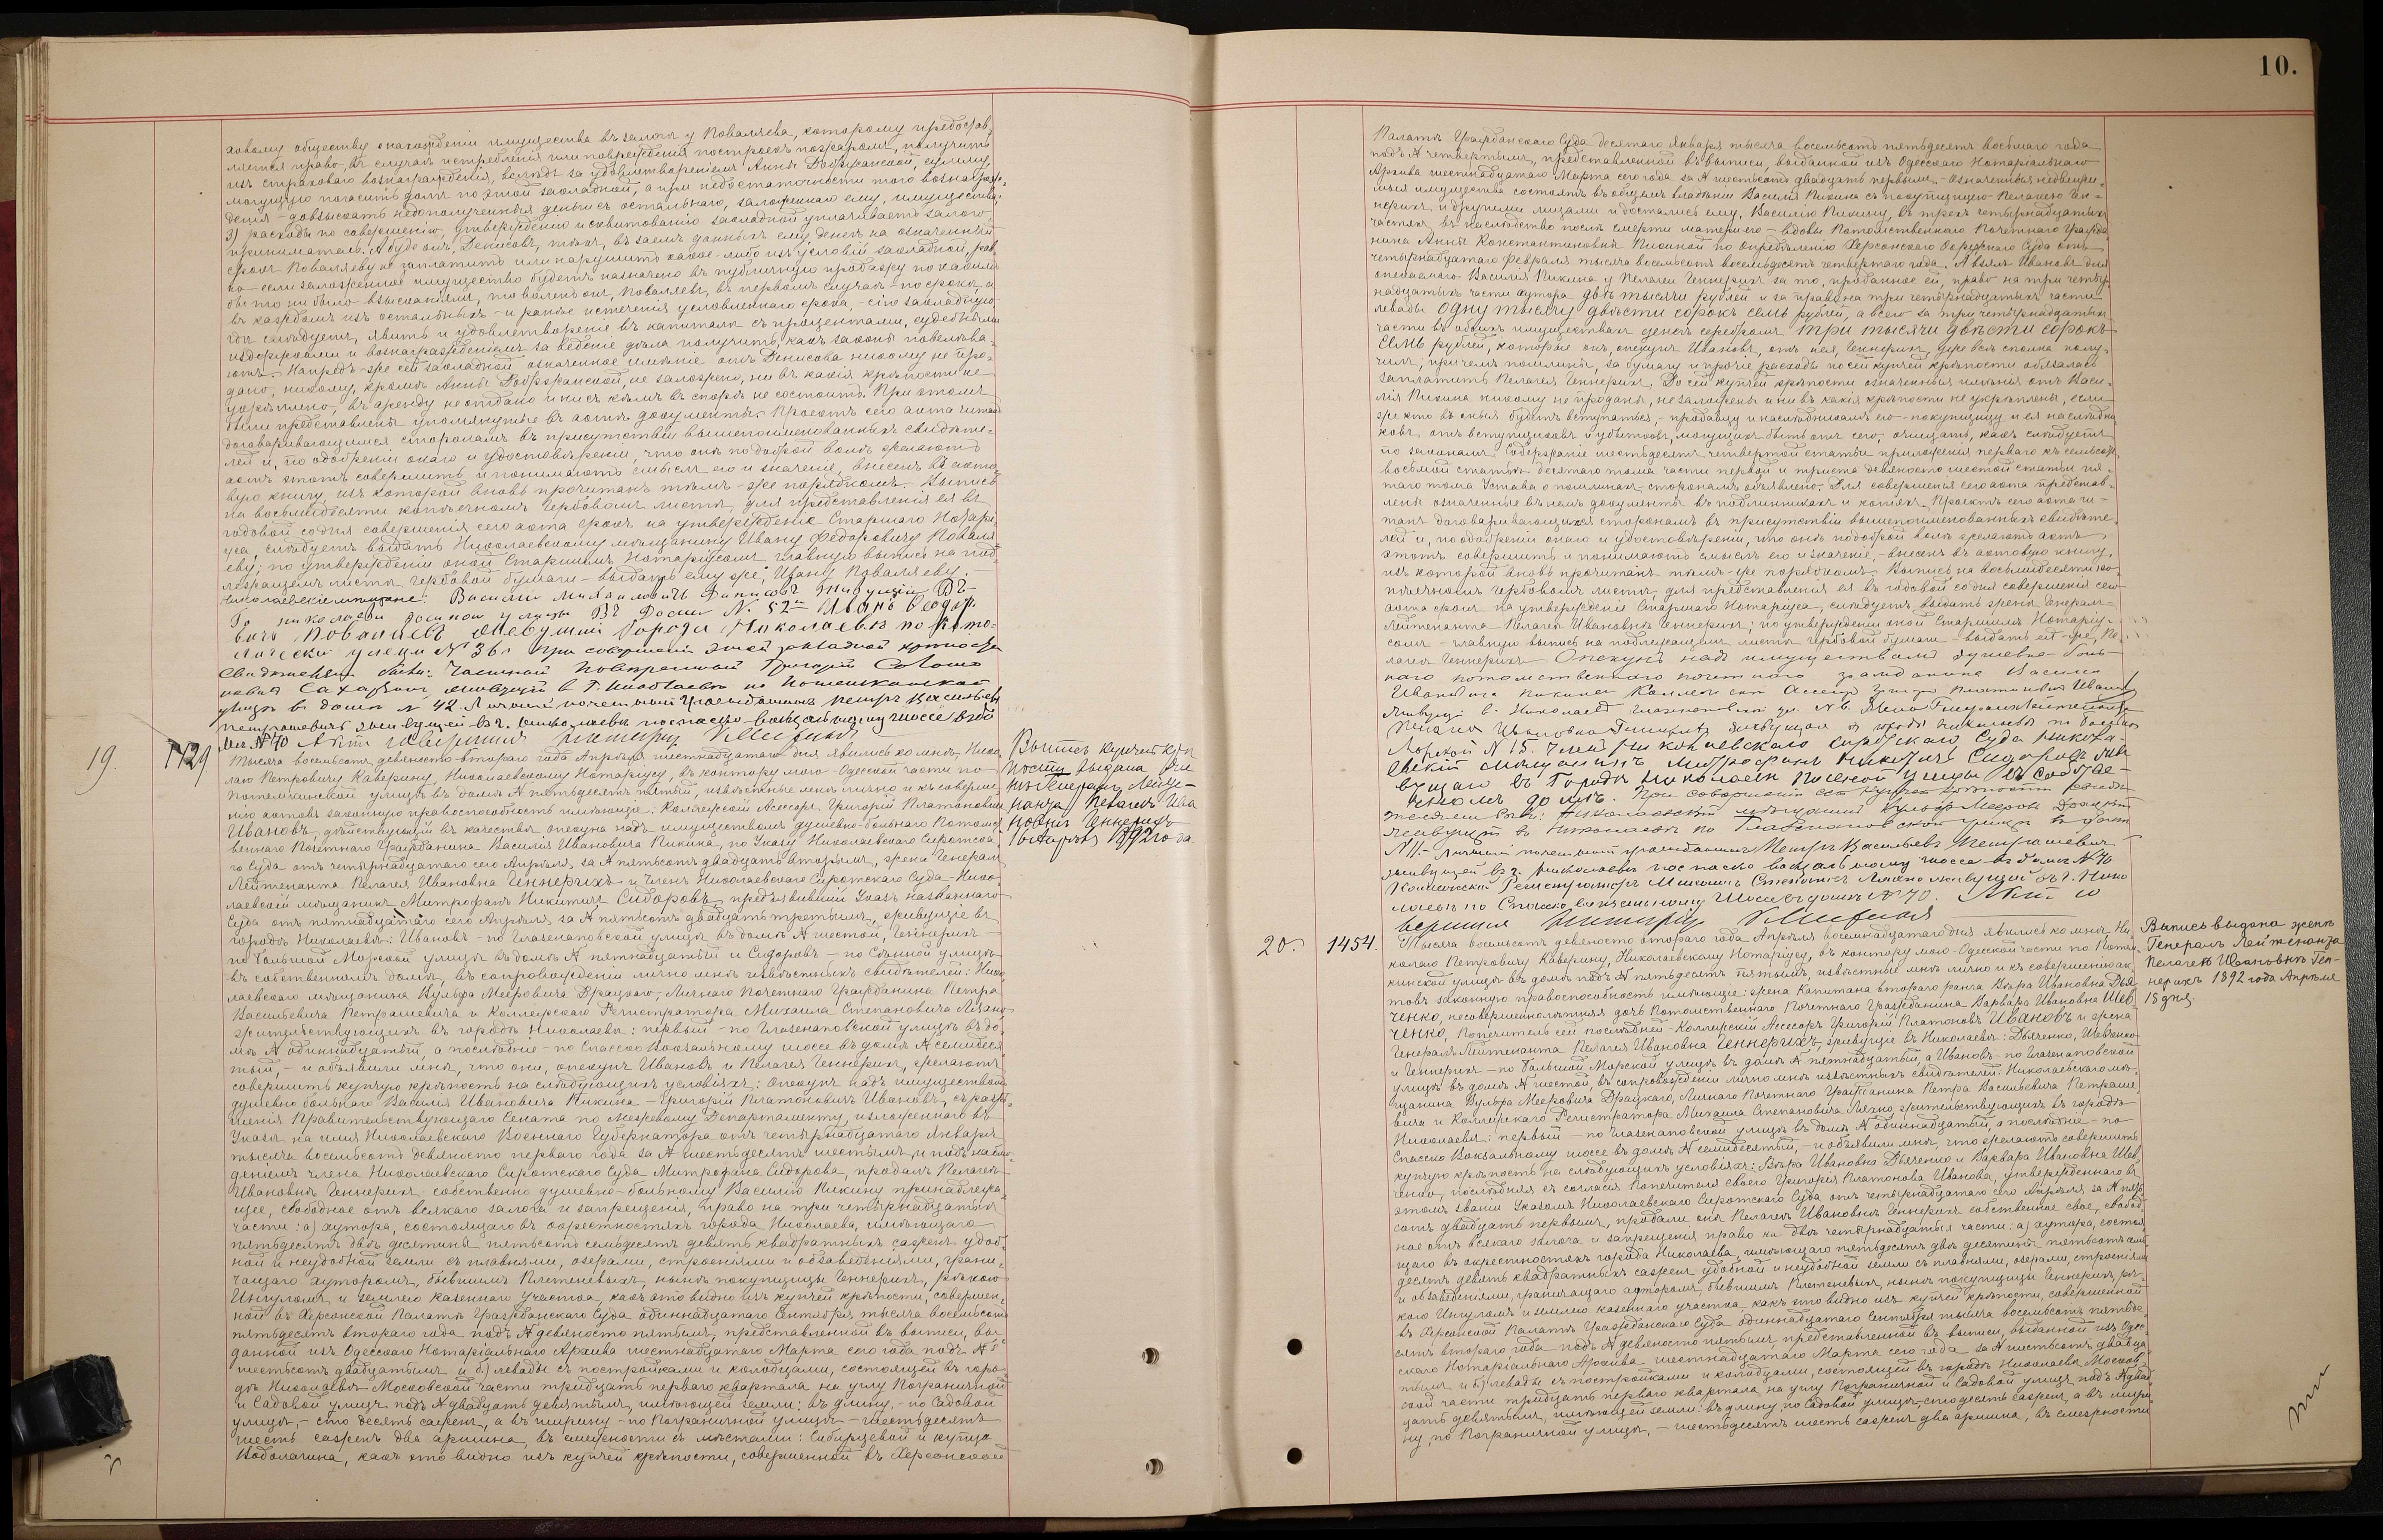 ховому обществу о нахожденіи имущества въ залогѣ у Поваляева, которому предостав-
ляется право, въ случаѣ истребленія или поврежденія построекъ пожаромъ, получить
изъ страховаго вознагражденія, вслѣдъ за удовлетвореніемъ Анны Добржанской, сумму,
могущую погасить долгъ по этой закладной, а при недостаточности того вознаграж-
денія – довзыскать недополученныя деньги съ остальнаго, заложеннаго ему, имущества.
3) расходы по совершенію, утвержденію и
принимаетъ. А буде онъ, Денисовъ, въ заемъ данныхъ ему денегъ на означенный
срокъ Поваляеву не заплатитъ или нарушитъ какое-либо изъ условій закладной, рав-
но – если заложенное имущество будетъ назначено въ публичную продажу по какимъ
бы то ни было взысканіямъ, то воленъ онъ, Поваляевъ, въ первомъ случаѣ – по срокѣ, а
въ каждомъ изъ остальныхъ – и ранѣе истеченія условленнаго срока, – сію закладную
гдѣ слѣдуетъ, явить и удовлетвореніе въ капиталѣ съ процентами, судебными
издержками и вознагражденіемъ за веденіе дѣла получить, какъ законы повелѣва-
ютъ. Напредь же сей закладной означенное имѣніе отъ Денисова никому не про-
дано, никому, кромѣ Анны Добржанской, не заложено, ни въ какія крѣпости не
укрѣплено, въ аренду не отдано и ни съ кѣмъ въ спорѣ не состоитъ. При этомъ
были представлены упомянутые въ актѣ документы. Проектъ сего акта читанъ
договаривающимся сторонамъ въ присутствіи вышепоименованныхъ свидѣте-
лей и, по одобреніи онаго и удостовѣреніи, что они по доброй волѣ желаютъ
актъ этотъ совершить и понимаютъ смыслъ его и значеніе, внесенъ въ акто-
вую книгу, изъ которой вновь прочитанъ тѣмъ-же порядкомъ. Выпись
на восьмидесяти копѣечномъ гербовомъ листѣ, для представленія ея въ
годовой со дня совершенія сего акта срокъ на утвержденіе Старшаго Нотарі-
уса, слѣдуетъ выдать Николаевскому мѣщанину Ивану Федоровичу Поваля-
еву; по утвержденіи оной Старшимъ Нотаріусомъ, главную выпись на над-
лежащемъ листѣ гербовой бумаги – выдать ему же, Ивану Поваляеву.
Николаевскіе мѣщане: Василій Михайловичъ Денисовъ
улицы въ домѣ № 52 Иванъ Федор.
вичъ Поваляевъ живущій города Николаева по
улицы № 36. При совершеніи этой закладной крѣпости
свидетелями были: Частный повѣренный Григорій
живущій в г. Николаевѣ по Потемкинской
улицѣ в домѣ № 42 Личный почетный гражданинъ Петръ Васильевъ
Петрашевичъ живущій въ г. Николаевѣ по спаско вокзальному шоссе въ до
мѣ № 70
19.
1429
Тысяча восемьсотъ девяносто втораго года Апрѣля шестнадцатаго дня явились ко мнѣ, Нико-
лаю Петровичу Каверину, Николаевскому Нотаріусу, въ контору мою – Одесской части по
Потемкинской улицѣ въ домѣ № пятьдесятъ пятый, извѣстные мнѣ лично и къ соверше-
нію актовъ законную правоспособность имѣющіе: Коллежскій Асессоръ Григорій Платоновичъ
Ивановъ, дѣйствующій въ качествѣ опекуна надъ имуществомъ душевно-больнаго Потомст-
веннаго Почетнаго Гражданина Василія Ивановича Пикина, по Указу Николаевскаго Сиротска-
го Суда отъ четырнадцатаго сего Апрѣля, за № пятьсотъ двадцать вторымъ, жена Генералъ
Лейтенанта Пелагея Ивановна Геннерихъ и Членъ Николаевскаго Сиротскаго Суда – Нико-
лаевскій мѣщанинъ Митрофанъ Никитичъ Сидоровъ, предъявившій Указъ названнаго
Суда отъ пятнадцатаго сего Апрѣля за № пятьсотъ двадцать третьимъ, живущіе въ
городѣ Николаевѣ: Ивановъ – по Глазенаповской улицѣ въ домѣ № шестой, Геннерихъ –
по Большой Морской улицѣ въ домѣ № пятнадцатый и Сидоровъ – по Сѣнной улицѣ
въ собственномъ домѣ, въ сопровожденіи лично мнѣ извѣстныхъ свидѣтелей: Нико-
лаевскаго мѣщанина Вульфа Мееровича Драцкаго, Личнаго Почетнаго Гражданина Петра
Васильевича Петрашевича и Коллежскаго Регистратора Михаила Степановича Ляхно
жительствующихъ въ городѣ Николаевѣ: первый – по Глазенаповской улицѣ въ до-
мѣ № одиннадцатый, а послѣдніе – по Спасско Вокзальному шоссе въ домѣ № семидеся-
тый, – и объявили мнѣ, что они, опекунъ Ивановъ и Пелагея Геннерихъ, желаютъ
совершить купчую крѣпость на слѣдующихъ условіяхъ: Опекунъ надъ имуществомъ
душевно больнаго Василія Ивановича Пикина – Григорій Платоновичъ Ивановъ, съ разрѣ-
шенія Правительствующаго Сената по Межевому Департаменту, изложеннаго въ
Указѣ на имя Николаевскаго Военнаго Губернатора отъ четырнадцатаго Января
тысяча восемьсотъ девяносто перваго года за № шестьдесятъ шестымъ, и подъ наблю-
деніемъ члена Николаевскаго Сиротскаго Суда Митрофана Сидорова, продалъ Пелагеѣ
Ивановнѣ Геннерихъ собственно душевно-больному Василію Пикину принадлежа-
щее, свободное отъ всякаго залога и запрещенія, право на три четырнадцатыя
части: а) хутора, состоящаго въ окрестностяхъ города Николаева, имѣющаго
пятьдесятъ двѣ десятины пятьсотъ семьдесятъ девять квадратныхъ саженъ удоб-
ной и неудобной земли съ плавнями, озерами, строеніями и обзаведеніями, грани-
чащаго хуторомъ, бывшимъ Плетеневыхъ, нынѣ покупщицы Геннерихъ, рѣкою
Ингуломъ и землею казеннаго участка, какъ это видно изъ купчей крѣпости, совершен-
ной въ Херсонской Палатѣ Гражданскаго Суда одиннадцатаго Сентября тысяча восемьсотъ
пятьдесятъ втораго года подъ № девяносто пятымъ, представленной въ выписи, вы-
данной изъ Одесскаго Нотаріальнаго Архива шестнадцатаго Марта сего года подъ №
шестьсотъ двадцатымъ и б) левады съ постройками и колодцами, состоящей въ горо-
дѣ Николаевѣ Московской части тридцать перваго квартала на углу Пограничной
и Садовой улицъ подъ № двадцать девятымъ, имѣющей земли: въ длину, – по Садовой
улицѣ, – сто десять саженъ, а въ ширину – по Пограничной улицѣ – шестьдесятъ
шесть саженъ два аршина, въ смежности съ мѣстами: Сибирцевой и купца
Водолагина, какъ это видно изъ купчей крѣпости, совершенной въ Херсонской
Выпись купчей крѣ
пости выдана же
нѣ Генералъ Лейте-
нанта Пелагеѣ Ива
новнѣ Геннерихъ
16 Апрѣля 1892 года.
10.
Палатѣ Гражданскаго Суда десятаго Января тысяча восемьсотъ пятьдесятъ восьмаго года
подъ № четвертымъ, представленной въ выписи, выданной изъ Одесскаго Нотаріальнаго
Архива шестнадцатаго Марта сего года за № шестьсотъ двадцать первымъ. – Означенныя недвижи-
мыя имущества состоятъ въ общемъ владѣніи Василія Пикина съ покупщицею Пелагеею Ген-
нерихъ и другими лицами и достались ему, Василію Пикину, въ трехъ четырнадцатыхъ
частяхъ, въ наслѣдство послѣ смерти матери его – вдовы Потомственнаго Почетнаго Гражда-
нина Анны Константиновны Пикиной по опредѣленію Херсонскаго Окружнаго Суда отъ
четырнадцатаго Февраля тысяча восемьсотъ восемьдесятъ четвертаго года. А взялъ Ивановъ для
опекаемаго Василія Пикина у Пелагеи Геннерихъ за то, проданное ей, право на три четыр-
надцатыхъ части хутора двѣ тысячи рублей и за право на три четырнадцатыхъ части
левады одну тысячу двѣсти сорокъ семь рублей, а всего за три четырнадцатыхъ
части въ обоихъ имуществахъ деньгами серебромъ три тысячи двѣсти сорокъ
семь рублей, которые онъ, опекунъ Ивановъ, отъ нея, Геннерихъ, уже всѣ сполна полу-
чилъ; при чемъ пошлины, за бумагу и прочіе расходы по сей купчей крѣпости обязалась
заплатить Пелагея Геннерихъ. До сей купчей крѣпости означенныя имѣнія отъ Васи-
лія Пикина никому не проданы, не заложены и ни въ какія крѣпости не укрѣплены, если
же кто въ оныя будетъ вступаться, – продавцу и наслѣдникамъ его – покупщицу и ея наслѣдни-
ковъ отъ вступщиковъ и убытковъ, могущихъ быть отъ сего, очищать, какъ слѣдуетъ
по законамъ. Содержаніе шестьдесятъ четвертой статьи приложенія перваго къ семьсотъ
восьмой статьѣ десятаго тома части первой и триста девяносто шестой статьи пя-
таго тома Устава о пошлинахъ сторонамъ объявлено. Для совершенія сего акта представ-
лены означенные въ немъ документы въ подлинникахъ и копіяхъ. Проектъ сего акта чи-
танъ договаривающимся сторонамъ въ присутствіи вышепоименованныхъ свидѣте-
лей и, по одобреніи онаго и удостовѣреніи, что они по доброй волѣ желаютъ актъ
этотъ совершить и понимаютъ смыслъ его и значеніе, – внесенъ въ актовую книгу,
изъ которой вновь прочитанъ тѣмъ-же порядкомъ. Выпись на восьмидесяти ко-
пѣечномъ гербовомъ листѣ, для представленія ея въ годовой со дня совершенія сего
акта срокъ на утвержденіе Старшаго Нотаріуса, слѣдуетъ выдать женѣ Генералъ-
Лейтенанта Пелагеѣ Ивановнѣ Геннерихъ; по утвержденіи оной Старшимъ Нотаріу-
сомъ – главную выпись на надлежащемъ листѣ гербовой бумаги – выдать ей-же, Пе-
лагеѣ Геннерихъ. Опекунъ надъ имуществомъ душевно-боль-
наго потомственнаго почетнаго гражданина Василія
Ивановича Пикина Коллежскій Ассесоръ Григорій Платоновичъ Ивановъ
живущій в. Николаевѣ Глазенаповской ул. № 6. Жена Генералъ Лейтенанта
Пелагея Ивановна Геннерихъ живущая в городѣ Николаевѣ по Большой
Морской № 15. Членъ Николаевскаго Сиротскаго Суда Никола-
евскій Мещанинъ Митрофанъ Никитичъ Сидоровъ жив
ущаго въ Городѣ Николаевѣ по Сеной улицы въ собстве-
номъ домѣ. При совершеніи сей купчей крѣпости свидѣ-
телями были: Николаевскій мѣщанинъ Вульфъ Мееровъ Драцкій
живущій в Николаевѣ по Глазенаповской улицѣ в домѣ
№ 11. – Личный почетный гражданинъ Петръ Васильевъ Петрашевичъ
живущій въ г. Николаевѣ по спаско вокзальному шоссе въ домѣ № 70
Коллежскій Регистраторъ Михаилъ Степановичъ Ляхно живущій въ г. Нико
лаевѣ по Спаско вокзальному Шоссе въ домѣ № 70.
20.
1454.
Тысяча восемьсотъ девяносто втораго года Апрѣля восемнадцатаго дня явились ко мнѣ, Ни-
колаю Петровичу Каверину, Николаевскому Нотаріусу, въ контору мою – Одесской части по Потем-
кинской улицѣ въ домѣ подъ № пятьдесятъ пятымъ, извѣстные мнѣ лично и къ совершенію ак-
товъ законную правоспособность имѣющіе: жена Капитана втораго ранга Вѣра Ивановна Дья-
ченко, несовершеннолѣтняя дочь Потомственнаго Почетнаго Гражданина Варвара Ивановна Шев-
ченко, Попечитель сей послѣдней – Коллежскій Асессоръ Григорій Платоновъ Ивановъ и жена
Генералъ Лейтенанта Пелагея Ивановна Геннерихъ, живущіе въ Николаевѣ: Дьяченко, Шевченко
и Геннерихъ – по Большой Морской улицѣ въ домѣ № пятнадцатый, а Ивановъ – по Глазенаповской
улицѣ въ домѣ № шестой, въ сопровожденіи лично мнѣ извѣстныхъ свидѣтелей: Николаевскаго мѣ-
щанина Вульфа Мееровича Драцкаго, Личнаго Почетнаго Гражданина Петра Васильевича Петраше-
вича и Коллежскаго Регистратора Михаила Степановича Ляхно, жительствующихъ въ городѣ
Николаевѣ: первый – по Глазенаповской улицѣ въ домѣ № одиннадцатый, а послѣдніе – по
Спасско Вокзальному шоссе въ домѣ № семидесятый, – и объявили мнѣ, что желаютъ совершить
купчую крѣпость на слѣдующихъ условіяхъ: Вѣра Ивановна Дьяченко и Варвара Ивановна Шев-
ченко, послѣдняя съ согласія Попечителя своего Григорія Платонова Иванова, утвержденнаго въ
этомъ званіи Указомъ Николаевскаго Сиротскаго Суда отъ четырнадцатаго сего Апрѣля за № пять-
сотъ двадцать первымъ, продали онѣ Пелагеѣ Ивановнѣ Геннерихъ собственное свое, свобод-
ное отъ всякаго залога и запрещенія право на двѣ четырнадцатыя части: а) хутора, состоя-
щаго въ окрестностяхъ города Николаева, имѣющаго пятьдесятъ двѣ десятины пятьсотъ семь-
десятъ девять квадратныхъ саженъ удобной и неудобной земли съ плавнями, озерами, строеніями
и обзаведеніями, граничащаго хуторомъ, бывшимъ Плетеневыхъ, нынѣ покупщицы Геннерихъ, рѣ-
кою Ингуломъ и землею казеннаго участка, какъ это видно изъ купчей крѣпости, совершенной
въ Херсонской Палатѣ Гражданскаго Суда одиннадцатаго Сентября тысяча восемьсотъ пятьде-
сятъ втораго года подъ № девяносто пятымъ, представленной въ выписи, выданной изъ Одес-
скаго Нотаріальнаго Архива шестнадцатаго Марта сего года за № шестьсотъ двадца-
тымъ и б) левады съ постройками и колодцами, состоящей въ городѣ Николаевѣ Москов-
ской части тридцать перваго квартала, на углу Пограничной и Садовой улицъ подъ № двад-
цать девятымъ, имѣющей земли: въ длину, по Садовой улицѣ, – сто десять саженъ, а въ шири-
ну, по Пограничной улицѣ, – шестьдесятъ шесть саженъ два аршина, въ смежности
Выпись выдана женѣ
Генералъ Лейтенанта
Пелагеѣ Ивановнѣ Ген-
нерихъ 1892 года Апрѣля
18 дня.